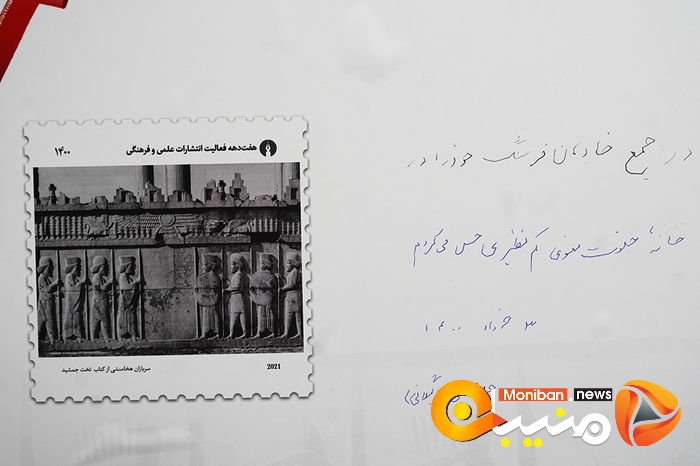 هفت‌دهه فعالیت انتشارات علمی و فرهنگی
۱۴۰۰
سربازان هخامنشی از کتاب تخت جمشید
2021
در جمع خادمان فرهنگ خود را در
خانهٔ خلوت معنوی کم نظیری حس می‌کردم
خرداد ۱۴۰۰
Moniban.news
منیبان